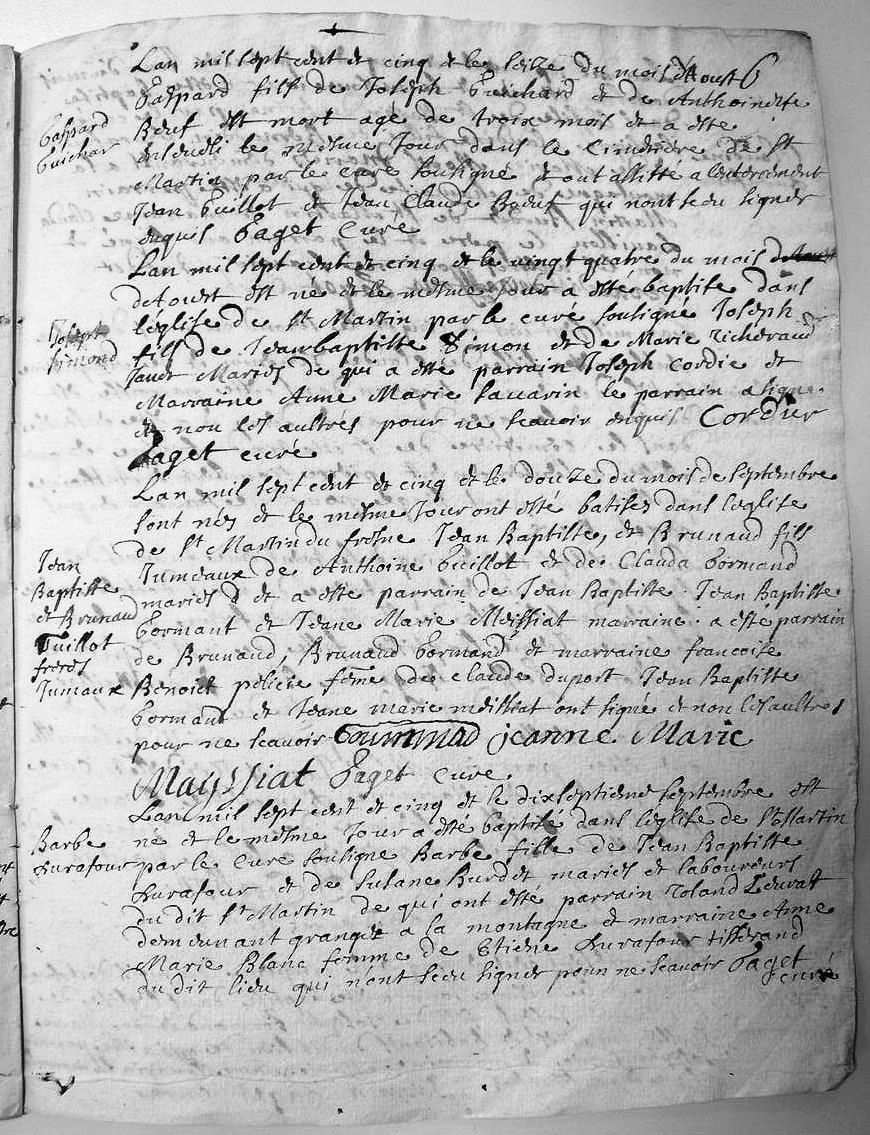 Lan mil sept cent et cinq et le seize du mois dAoust 6
Gaspard fils de Joseph Guichard et de Anthoinette
Gaspard
Guichar
Bœuf est mort agé de trois mois et a esté
enseveli le mesme Jour dans le Cimetiere de St
Martin par le curé souligné et ont assisté a lenterrement
Jean Guillot et Jean Claude Bœuf qui nont sceu signer
enquis Paget Curé
Lan mil sept cent et cinq et le vingt quatre du mois
detoust est né et le mesme jour a esté baptise dans
Joseph
Simond
léglise de St Martin par le curé souligné Joseph
fils de Jeanbaptiste Simon et de Marie Richeraud
Mariés de qui a esté parrain Joseph Cordie et
Marraine Anne Marie Savarin le parrain a signe
et non les aultres pour ne scavoir enquis Cordier
Paget curé
Lan mil sept cent et cinq et le douze du mois de septembre
sont nés et le mesme Jour ont esté batisez dans leglise
de St Martin du fresne Jean Baptiste, et Brunaud fils
Jean
Baptiste
et Brunaud
Guillot
freres
Jumaux
Jumeaux de Anthoine Guillot et de Clauda Gormand
mariés et a esté parrain de Jean Baptiste Jean Baptiste
Gormant et Jeane Marie Meissiat marraine a esté parrain
de Brunaud, Brunaud Gormand et marraine francoise
Benoict policie feme de claude duport Jean Baptiste
Gormant et Jeane marie meissiat ont signé et non les aultres
pour ne scavoir Gourmnad jeanne Marie
Mayssiat Paget Cure
Lan mil sept cent et cinq et le dixseptieme septembre est
Barbe
Durafour
né et le mesme Jour a esté baptisé dans leglise de St Martin
par le Curé souligne Barbe fille de Jean Baptiste
Durafour et de Susane Burdet mariés et laboureurs
du dit St Martin de qui ont esté parrain Roland
demeurant granger a la montagne et marraine Anne
Marie Blanc femme de Etiene Durafour tisserand
du dit lieu qui n'ont sceu signer pour ne scavoir Paget
curé